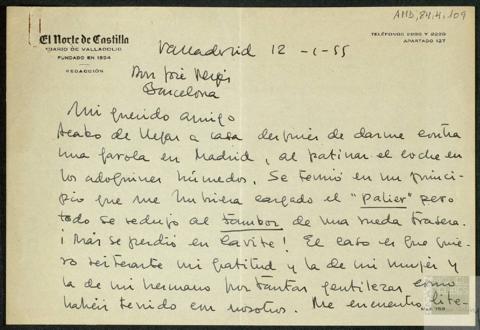 AMD, 84.4.109
El Norte de Castilla
DIARIO DE VALLADOLID
FUNDADO EN 1854
REDACCIÓN
TELÉFONOS 2295 Y 2229
APARTADO 127
Valladolid 12 -1-55
Don José Vergés
Barcelona
Mi querido amigo
Acabo de llegar a casa después de darme contra
una farola en Madrid, al patinar el coche en
los adoquines húmedos. Se temió en un princi-
pio que me hubiera cargado el "palier" pero
todo se redujo al tambor de una rueda trasera.
¡Más se perdió en Cavite! El caso es que quie-
ro reiterarte mi gratitud y la de mi mujer y
la de mi hermano por tantas gentilezas como
habéis tenido con nosotros. Me encuentro lite-